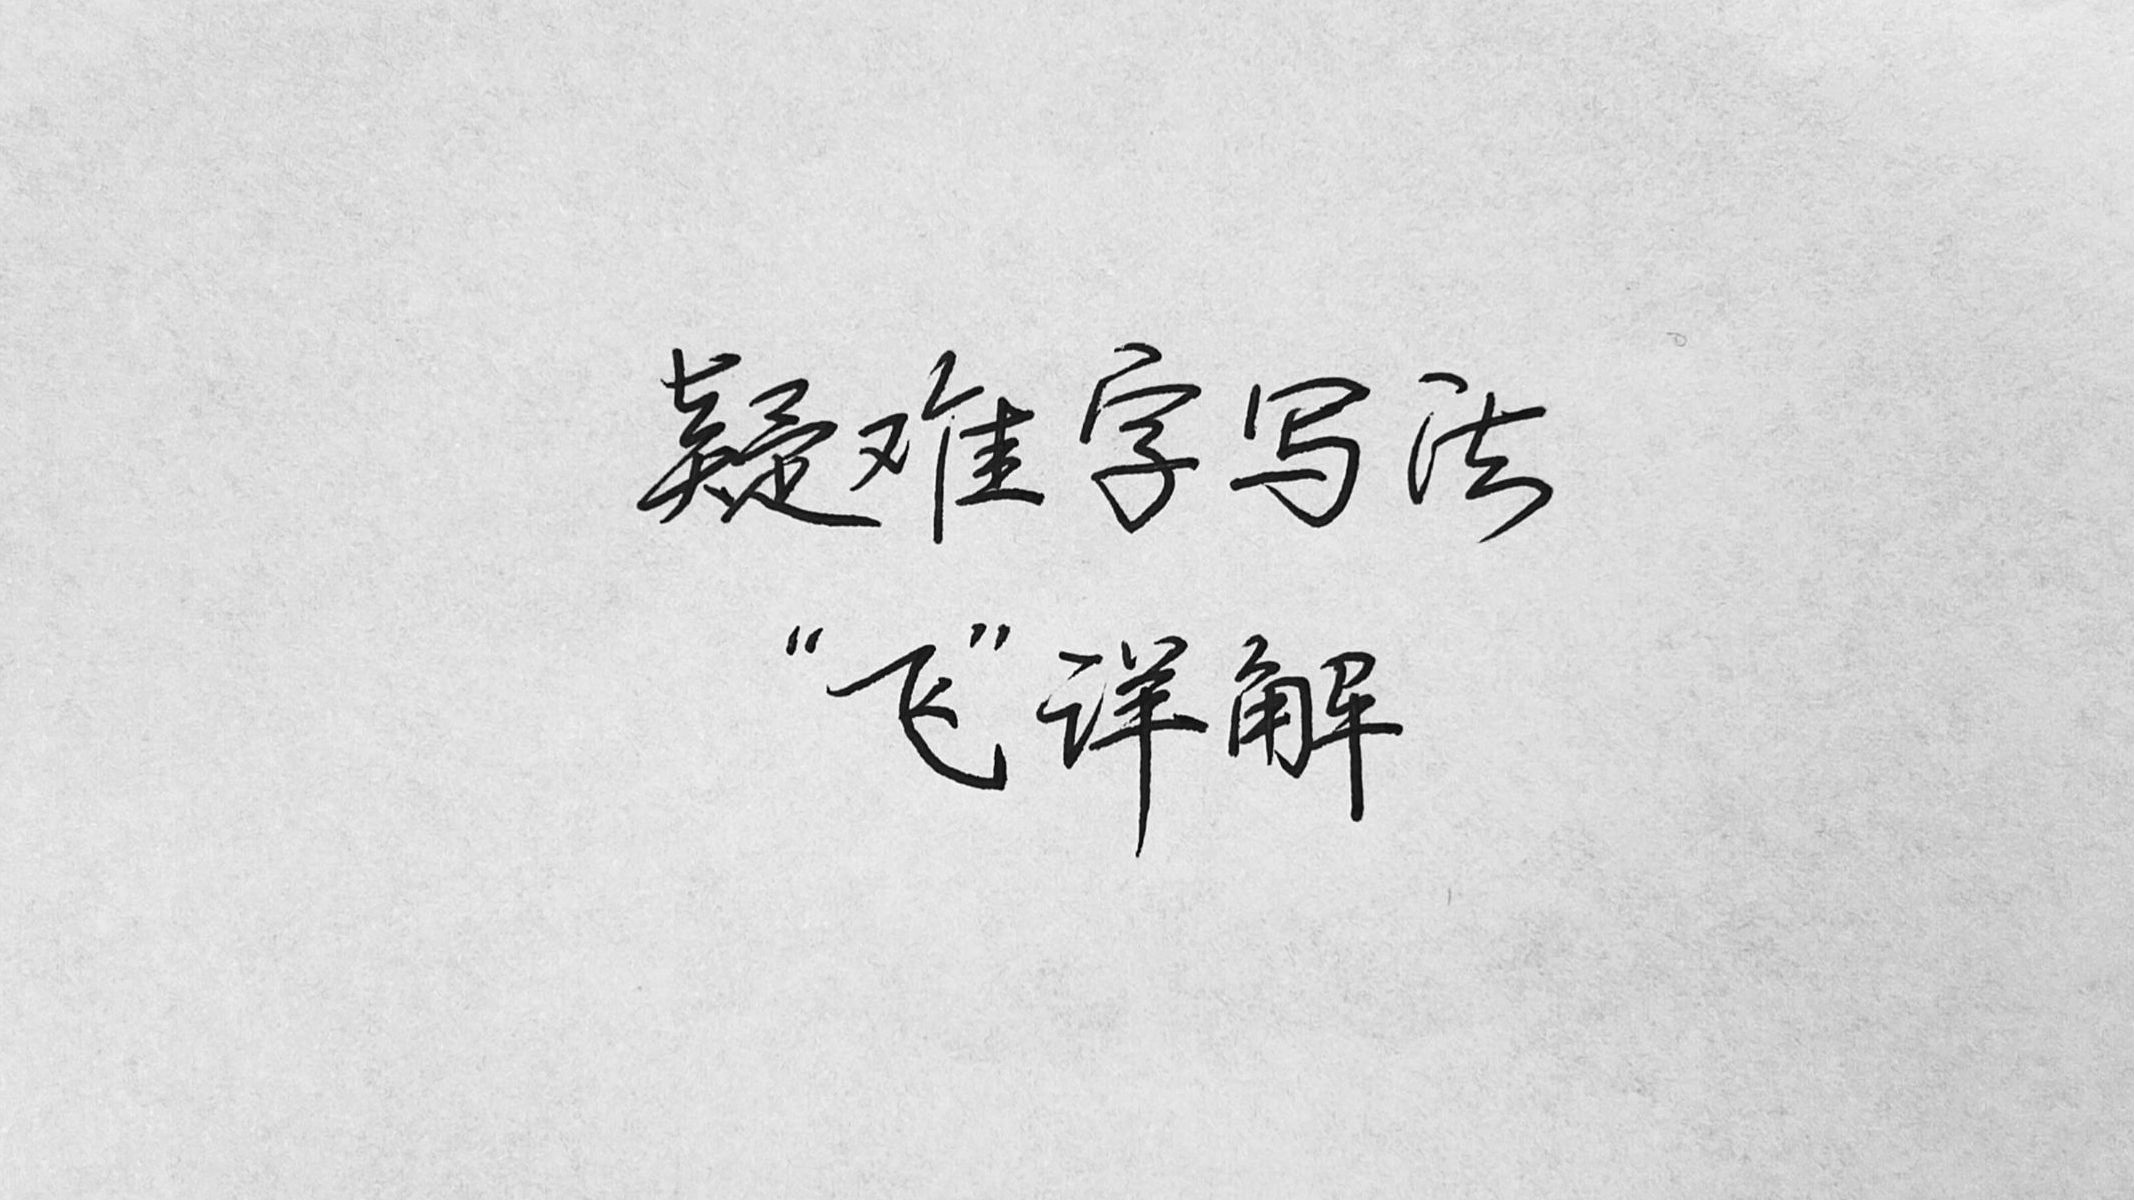 疑难字写法
“飞”详解